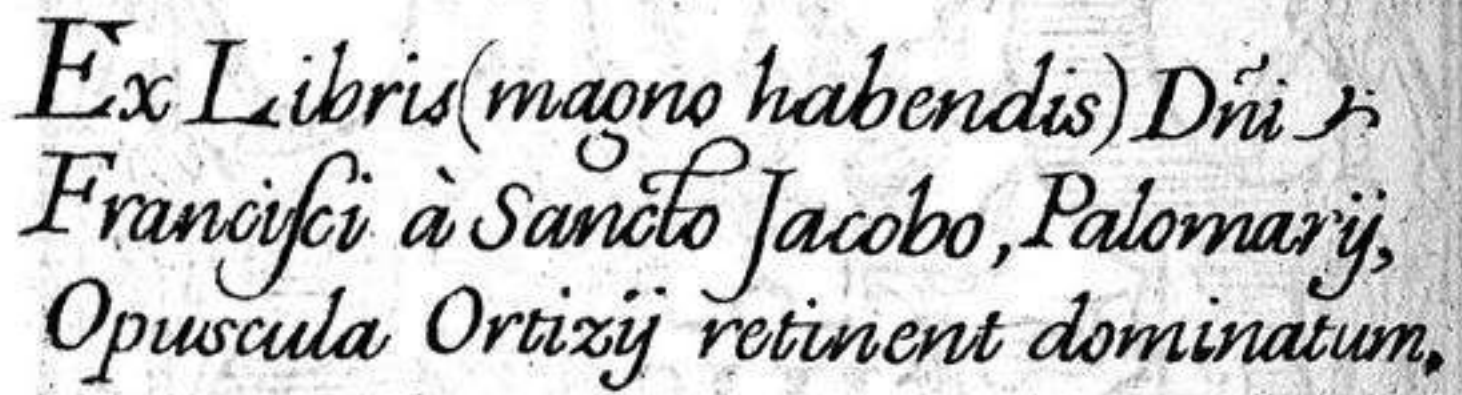 Ex Libris (magno habendis) Dñi
Franciſci à Sancto Jacobo, Palomarij,
Opuscula Ortizij retinent dominatum,